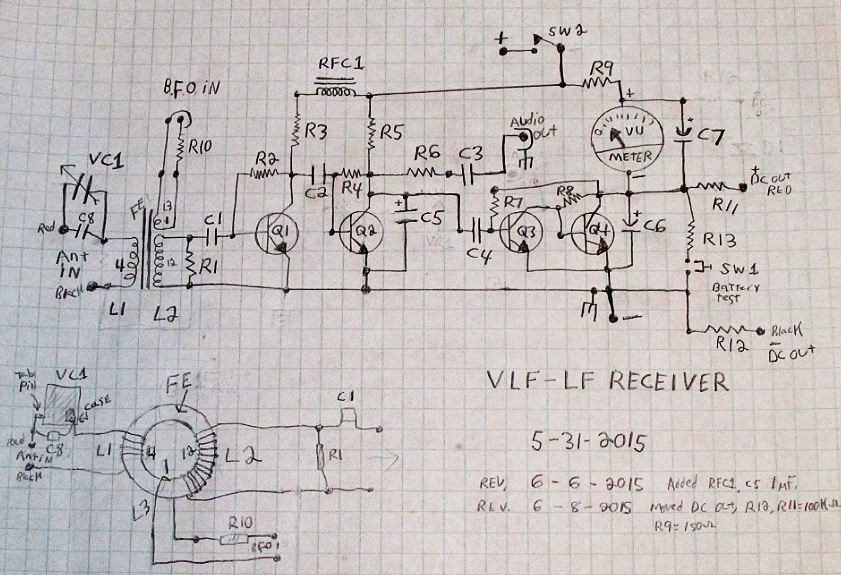 SW2
+
RFC1
R9
B.F.O IN
+
Audio
out
VU
METER
+
C7
R10
R3
R5
VC1
R2
C2
R4
R6
C3
+
DC out
RED
R11
FE
13
Red
C8
C1
+
C5
R7
R8
Q1
Q2
Q3
Q4
+
C6
Ant
IN
4
12
R1
C4
R13
SW1
Battery
test
Black
L1
L2
R12
Black
DC out
VC1
Tab
Pin
case
FE
C1
VLF-LF RECEIVER
Red
Ant IN
Black
C8
L1
4
12
1
L2
R1
L3
R10
BFO
5-31-2015
REV, 6-6-2015 Added RFC1, C5 1MF.
REV. 6-8-2015 moved DC out, R12, R11=100K Ω
R9=150Ω